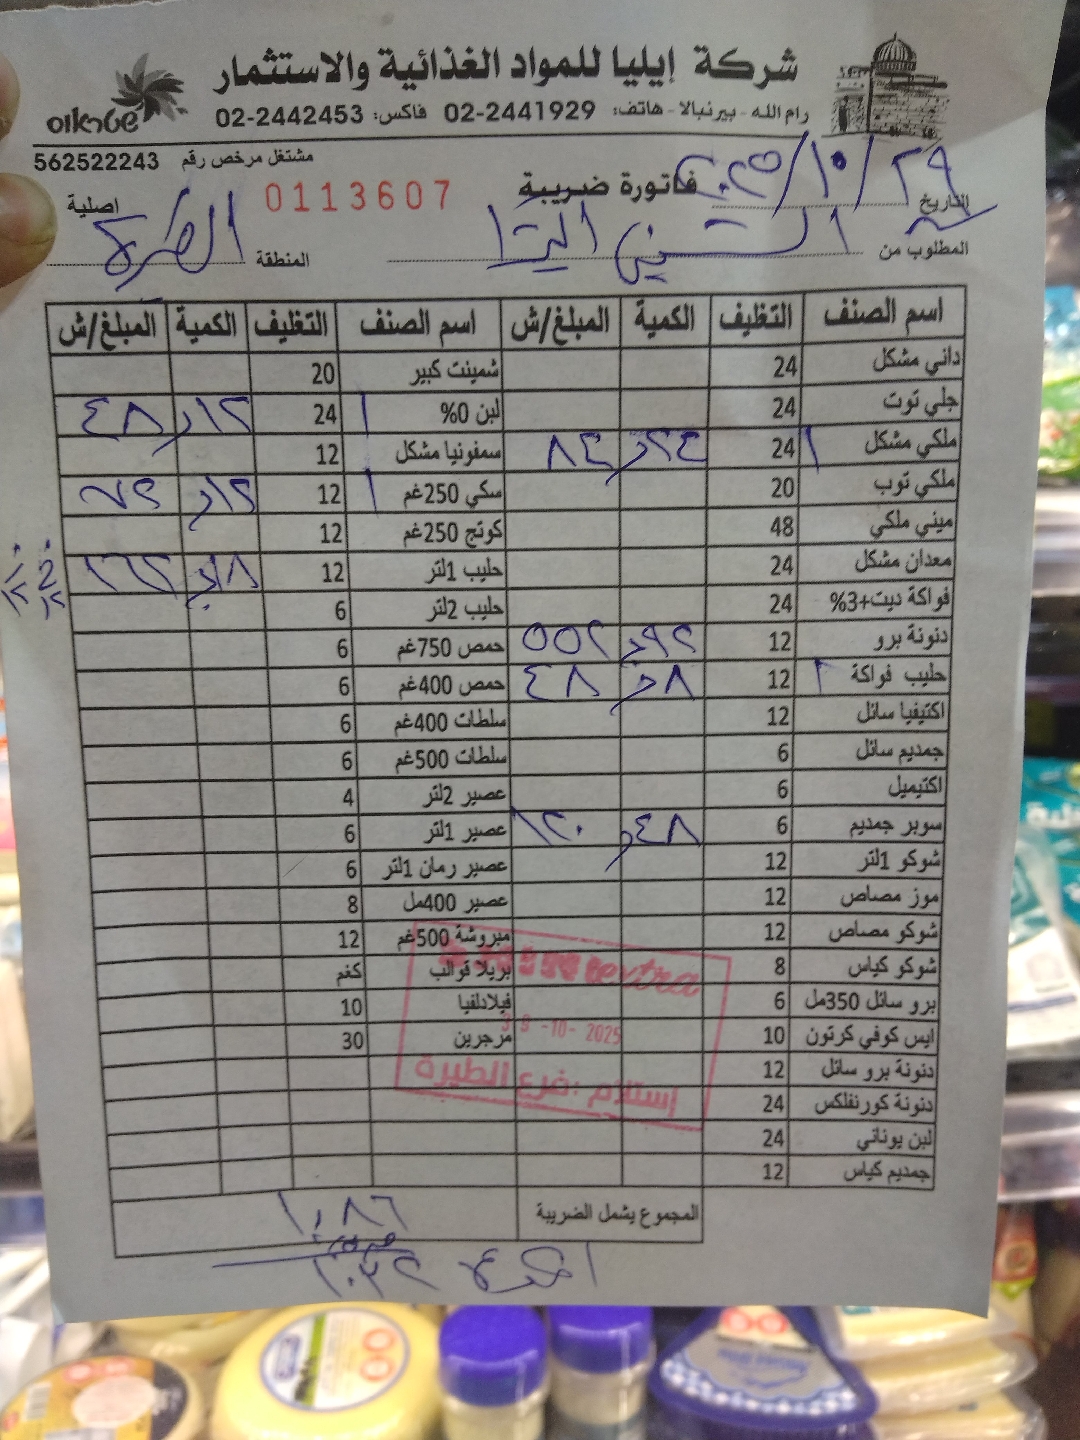 شركة إيليا للمواد الغذائية والاستثمار
שטראוס
رام الله - بيرنبالا - هاتف: 02-2441929 فاكس: 02-2442453
مشتغل مرخص رقم 562522243
فاتورة ضريبة 0113607 اصلية
التاريخ ٢٠٢٥/١٠/٢٩
المطلوب من
المنطقة الطيرة
اسم الصنف التغليف الكمية المبلغ/ش اسم الصنف التغليف الكمية المبلغ/ش
داني مشكل 24 شمينت كبير 20
جلي توت 24 لبن 0% ١ 24 ١٢ ٤٨
ملكي مشكل ١ 24 ٢٤ ٨٤ سمفونيا مشكل 12
ملكي توب 20 سكي 250غم ١ 12 ١٢ ٧٢
ميني ملكي 48 كوتج 250غم 12
معدان مشكل 24 حليب 1لتر 12 ١٨
فواكة ديت+3% 24 حليب 2لتر 6
دنونة برو 12 ٩٢ ٥٥٢ حمص 750غم 6
حليب فواكة ١ 12 ٨ ٤٨ حمص 400غم 6
اكتيفيا سائل 12 سلطات 400غم 6
جمديم سائل 6 سلطات 500غم 6
اكتيميل 6 عصير 2لتر 4
سوبر جمديم 6 ٤٨ ١٢٠ عصير 1لتر 6
شوكو 1لتر 12 عصير رمان 1لتر 6
موز مصاص 12 عصير 400مل 8
شوكو مصاص 12 مبروشة 500غم 12
شوكو كياس 8 بريلا قوالب كغم
برو سائل 350مل 6 فيلادلفيا 10
ايس كوفي كرتون 10 مرجرين 30
دنونة برو سائل 12
دنونة كورنفلكس 24
لبن يوناني 24
جمديم كياس 12
extra
-10- 2025
إستلام :فرع الطيرة
المجموع يشمل الضريبة ١,٠٨٦